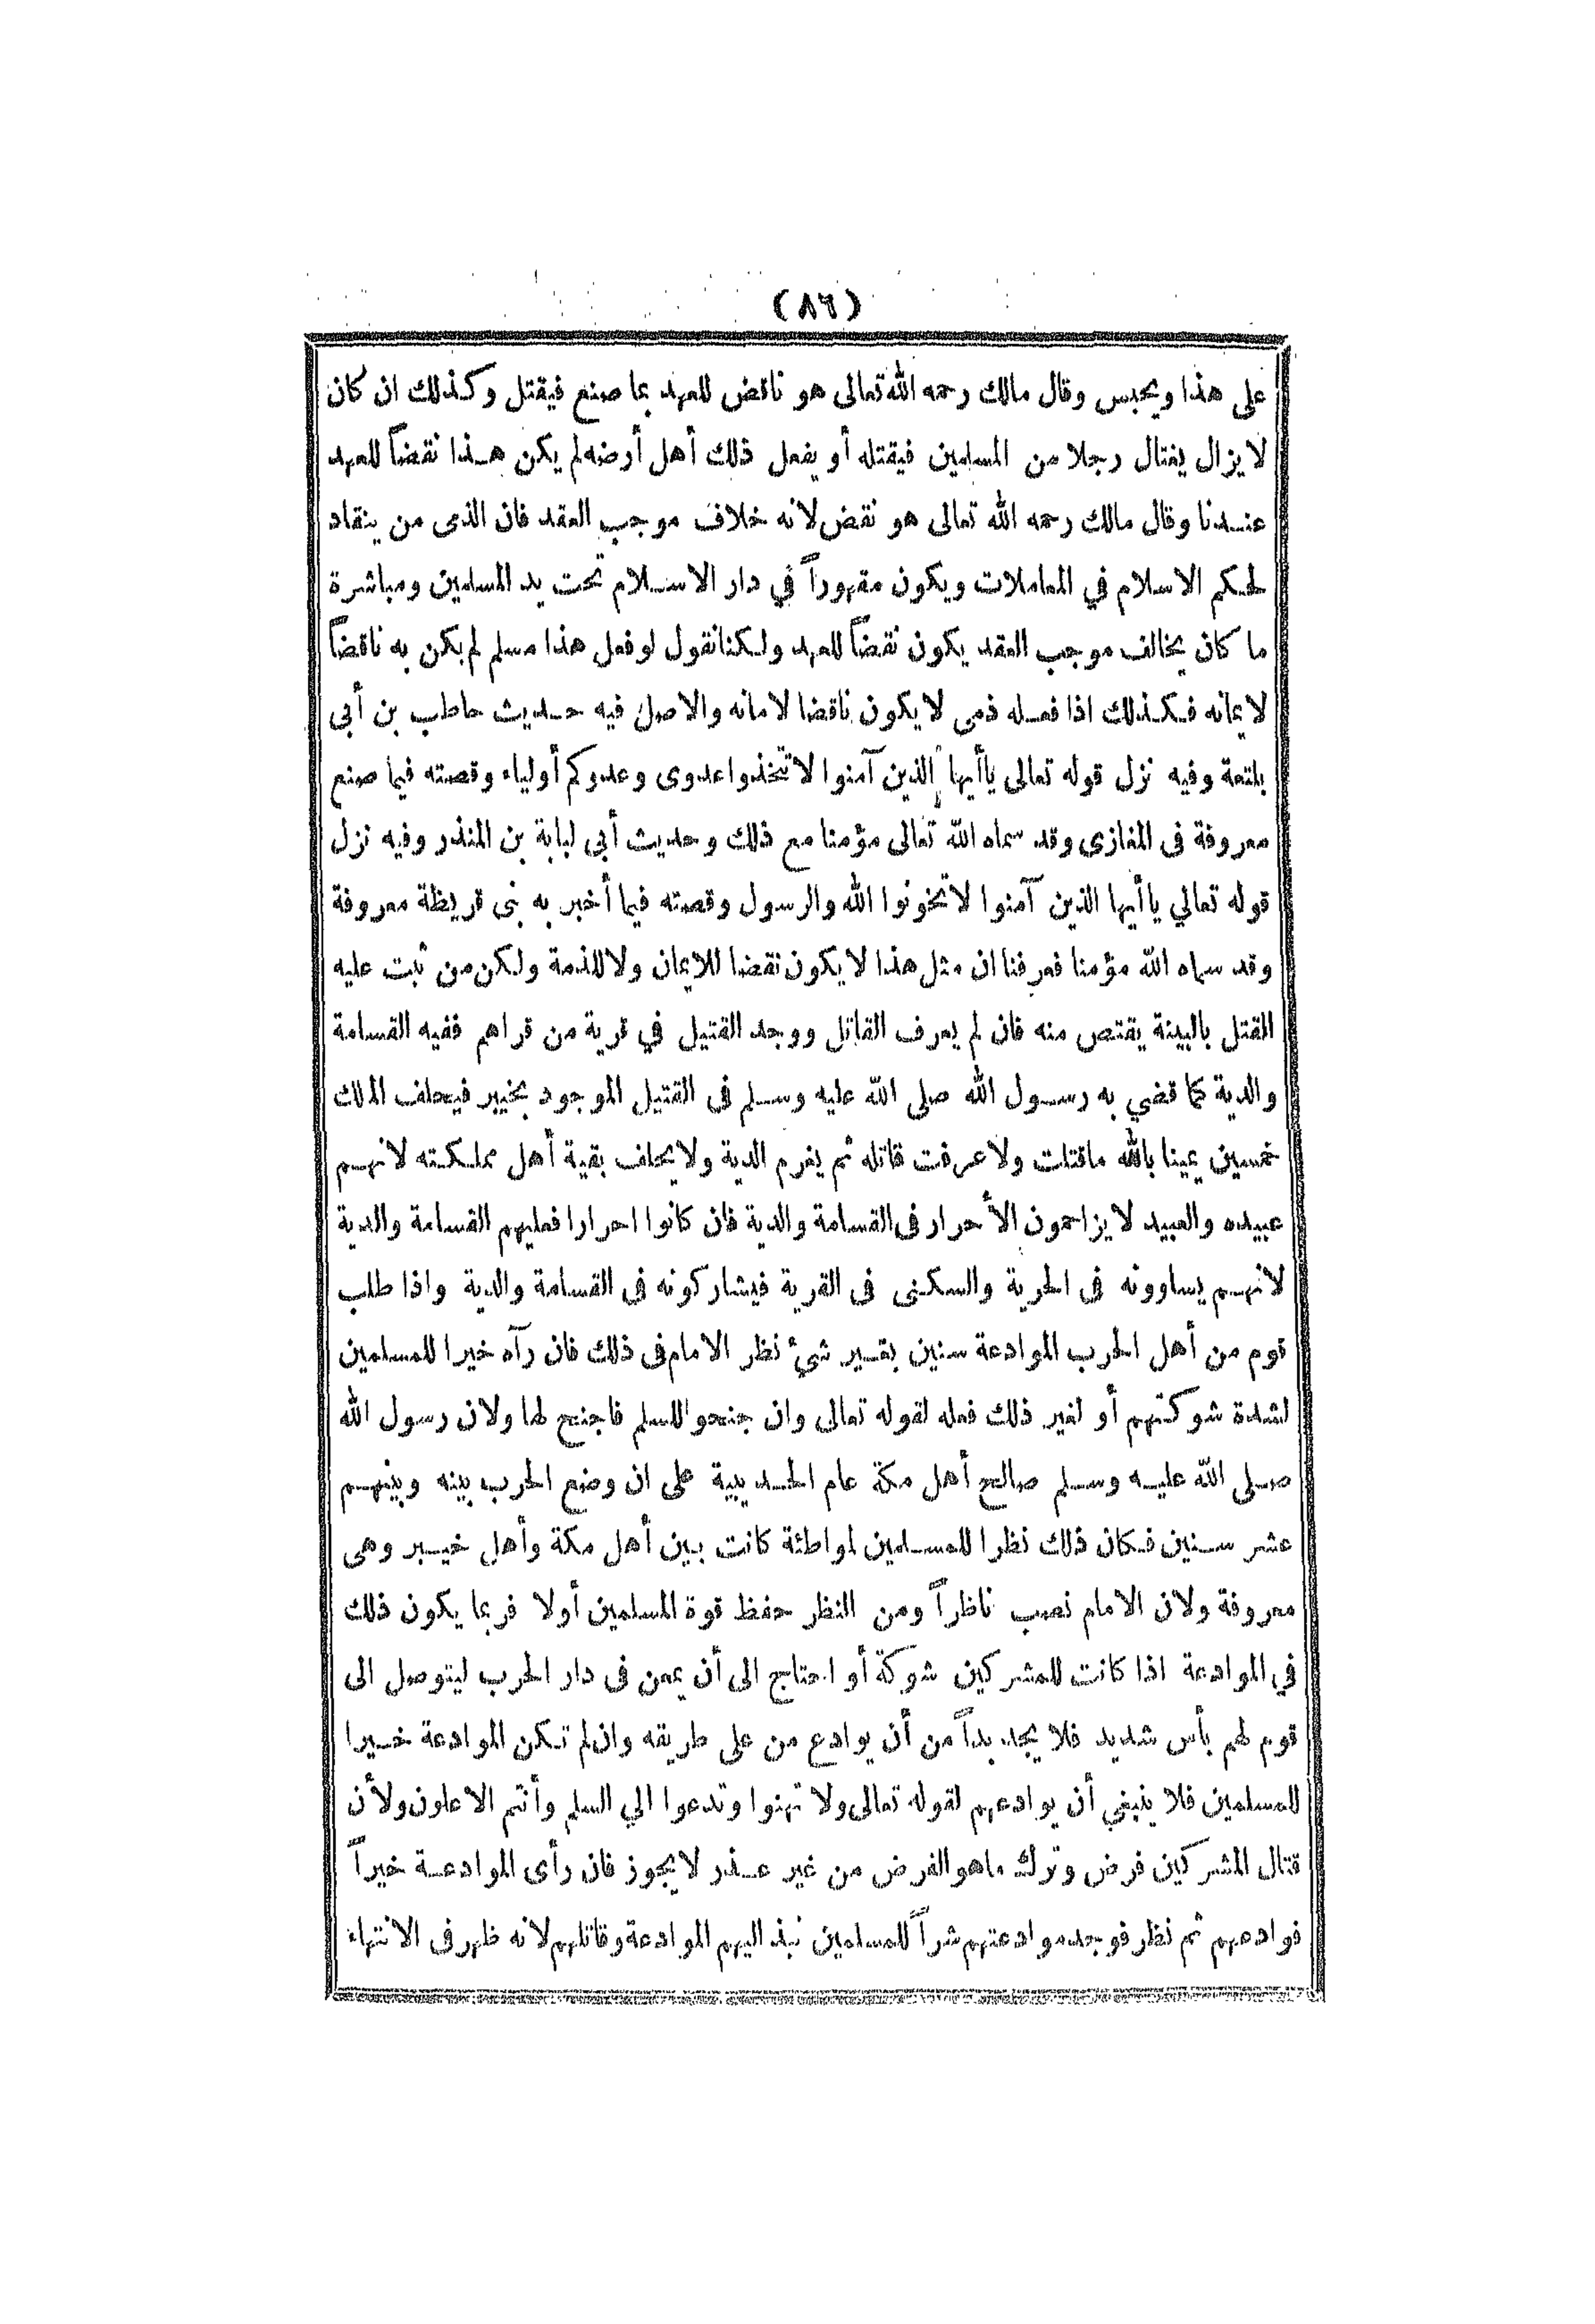 (٨٦)
على هذا ويحبس وقال مالك رحمه الله تعالى هو ناقض للعهد بما صنع فيقتل وكذلك ان كان
لا يزال يغتال رجلا من المسلمين فيقتله أو يفعل ذلك أهل أرضه لم يكن هذا نقضاً للعهد
عندنا وقال مالك رحمه الله تعالى هو نقض لانه خلاف موجب العقد فان الذمى من ينقاد
لحكم الاسلام في المعاملات ويكون مقهوراً في دار الاسلام تحت يد المسلمين ومباشرة
ما كان يخالف موجب العقد يكون نقضاً للعهد ولكنا نقول لو فعل هذا مسلم لم يكن به ناقضاً
لايمانه فكذلك اذا فعله ذمى لا يكون ناقضا لامانه والاصل فيه حديث حاطب بن أبى
بلتعة وفيه نزل قوله تعالى ياأيها الذين آمنوا لا تتخذوا عدوى وعدوكم أولياء وقصته فيما صنع
معروفة فى المغازى وقد سماه الله تعالى مؤمنا مع ذلك وحديث أبى لبابة بن المنذر وفيه نزل
قوله تعالي ياأيها الذين آمنوا لا تخونوا الله والرسول وقصته فيما أخبر به بنى قريظة معروفة
وقد سماه الله مؤمنا فعرفنا ان مثل هذا لا يكون نقضا للايمان ولا للذمة ولكن من ثبت عليه
القتل بالبينة يقتص منه فان لم يعرف القاتل ووجد القتيل في قرية من قراهم ففيه القسامة
والدية كما قضي به رسول الله صلى الله عليه وسلم فى القتيل الموجود بخيبر فيحلف الملك
خمسين يمينا بالله ماقتلت ولا عرفت قاتله ثم يغرم الدية ولا يحلف بقية أهل مملكته لانهم
عبيده والعبيد لا يزاحمون الأحرار فى القسامة والدية فان كانوا احرارا فعليهم القسامة والدية
لانهم يساوونه فى الحرية والسكنى فى القرية فيشاركونه فى القسامة والدية واذا طلب
قوم من أهل الحرب الموادعة سنين بغير شئ نظر الامام فى ذلك فان رآه خيرا للمسلمين
لشدة شوكتهم أو لغير ذلك فعله لقوله تعالى وان جنحوا للسلم فاجنح لها ولان رسول الله
صلى الله عليه وسلم صالح أهل مكة عام الحديبية على ان وضع الحرب بينه وبينهم
عشر سنين فكان ذلك نظرا للمسلمين لمواطئة كانت بين أهل مكة وأهل خيبر وهى
معروفة ولان الامام نصب ناظراً ومن النظر حفظ قوة المسلمين أولا فربما يكون ذلك
في الموادعة اذا كانت للمشركين شوكة أو احتاج الى أن يمعن فى دار الحرب ليتوصل الى
قوم لهم بأس شديد فلا يجد بداً من أن يوادع من على طريقه وان لم تكن الموادعة خيرا
للمسلمين فلا ينبغي أن يوادعهم لقوله تعالى ولا تهنوا وتدعوا الي السلم وأنتم الاعلون ولأن
قتال المشركين فرض وترك ماهو الفرض من غير عذر لا يجوز فان رأى الموادعة خيراً
فوادعهم ثم نظر فوجد موادعتهم شراً للمسلمين نبذ اليهم الموادعة وقاتلهم لانه ظهر فى الانتهاء